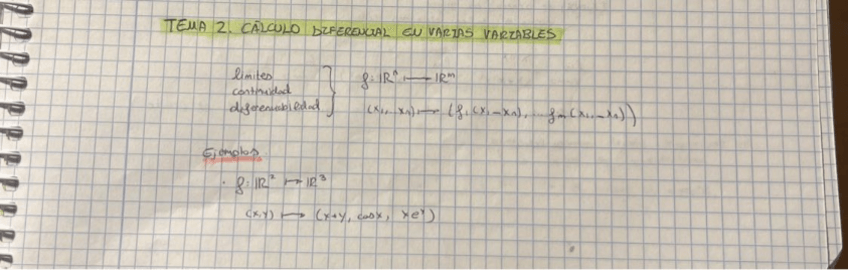 TEMA 2. CÁLCULO DIFERENCIAL EN VARIAS VARIABLES
límites
continuidad
diferenciabilidad
f: ℝⁿ ⟼ ℝᵐ
(x₁,...xₙ) ⟼ (f₁(x₁...xₙ), ... fₘ(x₁,...xₙ))
Ejemplos
· f: ℝ² ⟼ ℝ³
(x,y) ⟼ (x+y, cosx, xeʸ)